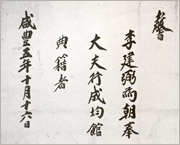 李建弼爲朝奉
大夫行成均館
典籍者
咸豐五年十月十六日